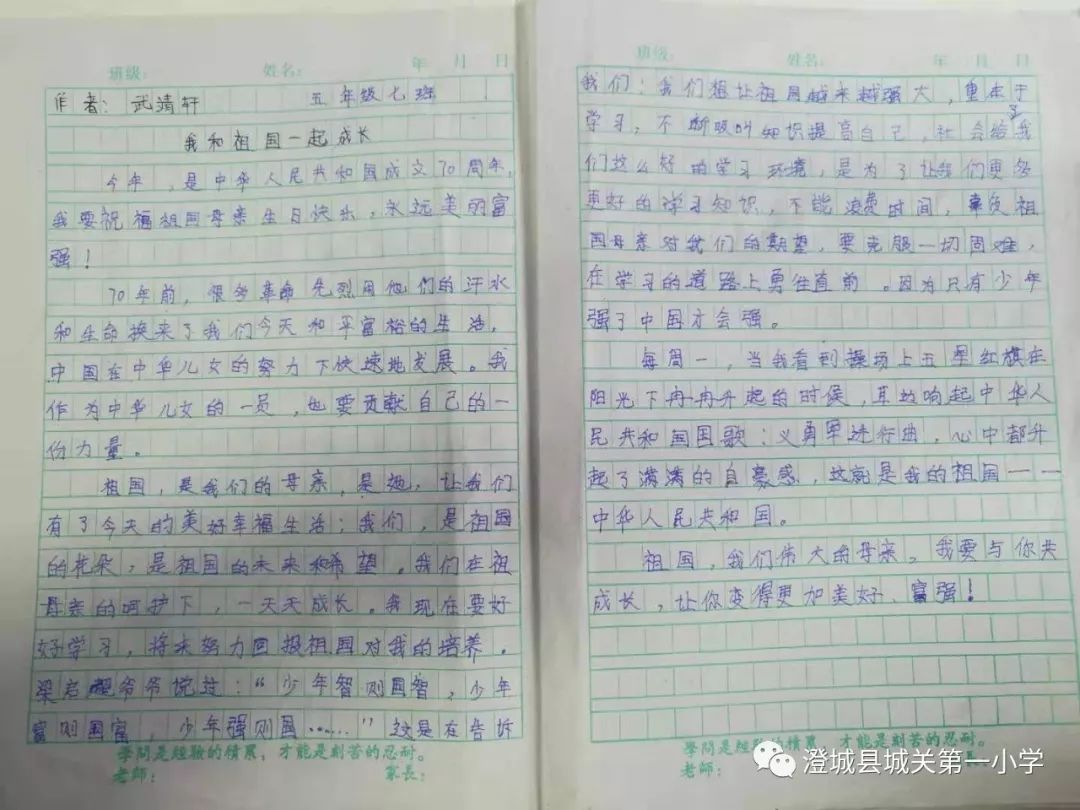 班級：　姓名：　年　月　日
作者：武靖轩　五年级七班
我和祖国一起成长
今年，是中华人民共和国成立70周年，
我要祝福祖国母亲生日快乐，永远美丽富
强！
70年前，很多革命先烈用他们的汗水
和生命换来了我们今天和平富裕的生活，
中国在中华儿女的努力下快速地发展。我
作为中华儿女的一员，也要贡献自己的一
份力量。
祖国，是我们的母亲，是她，让我们
有了今天的美好幸福生活；我们，是祖国
的花朵，是祖国的未来和希望。我们在祖
母亲的呵护下，一天天成长。我现在要好
好学习，将来努力回报祖国对我的培养。
梁启超爷爷说过：“少年智则国智，少年
富则国富，少年强则国……”这是在告诉
學問是經驗的積累，才能是刻苦的忍耐。
老師：　家長：
班级：　姓名：　年　月　日
我们：我们想让祖国越来越强大，重在于
学习，不断吸叫知识提高自己，社会给了我
们这么好的学习环境，是为了让我们更多
更好的学习知识，不能浪费时间，辜负祖
国母亲对我们的期望，要克服一切困难，
在学习的道路上勇往直前。因为只有少年
强了中国才会强。
每周一，当我看到操场上五星红旗在
阳光下冉冉升起的时候，耳边响起中华人
民共和国国歌：义勇军进行曲，心中都升
起了满满的自豪感，这就是我的祖国——
中华人民共和国。
祖国，我们伟大的母亲。我要与你共
成长，让你变得更加美好、富强！
學問是經驗的積累，才能是刻苦的忍耐。
老師：
澄城县城关第一小学